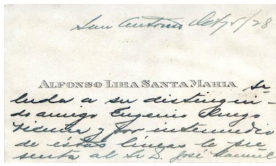 San Antonio, 5/28
ALFONSO LIRA SANTA MARIA sa
luda a su distingui
do amigo Eugenio
y por intermedio
de estas líneas le pre
senta al Sr. D. José